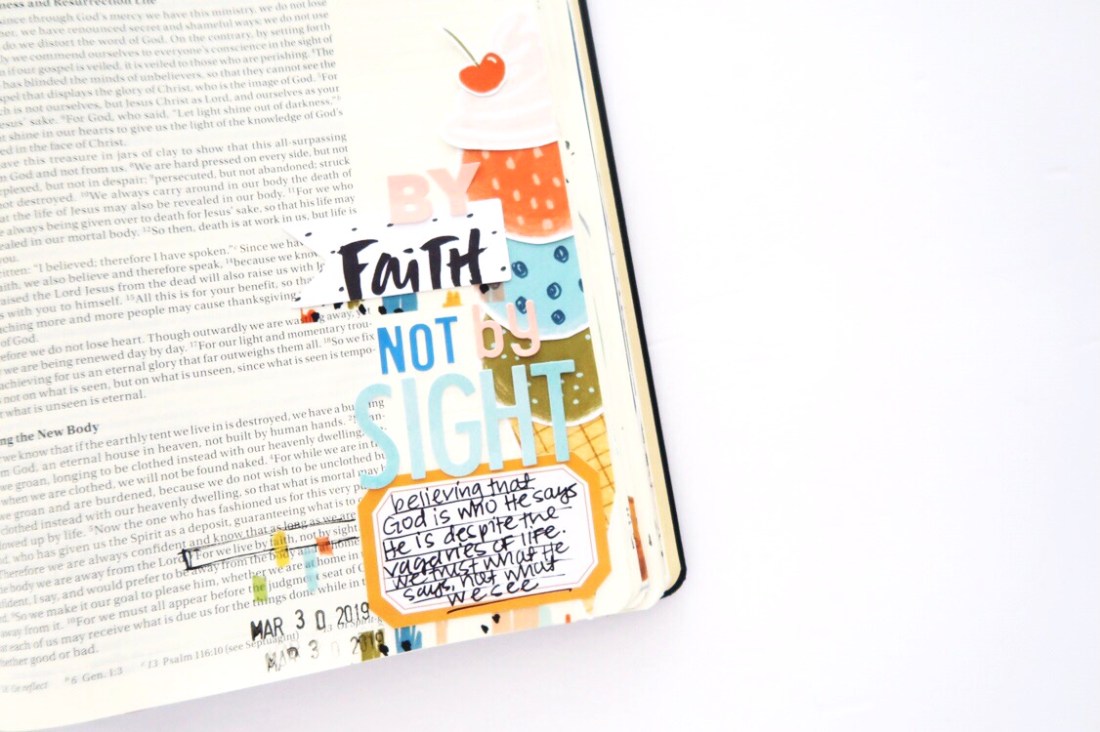 ness and Resurrection Life
since through God's mercy we have this ministry, we do not lose
we have renounced secret and shameful ways; we do not use
do we distort the word of God. On the contrary, by setting forth
we commend ourselves to everyone's conscience in the sight of
if our gospel is veiled, it is veiled to those who are perishing. ⁴The
has blinded the minds of unbelievers, so that they cannot see the
that displays the glory of Christ, who is the image of God. ⁵For
is not ourselves, but Jesus Christ as Lord, and ourselves as your
Jesus' sake. ⁶For God, who said, "Let light shine out of darkness,"
shine in our hearts to give us the light of the knowledge of God's
ed in the face of Christ.
ave this treasure in jars of clay to show that this all-surpassing
God and not from us. ⁸We are hard pressed on every side, but not
rplexed, but not in despair; ⁹persecuted, but not abandoned; struck
not destroyed. ¹⁰We always carry around in our body the death of
at the life of Jesus may also be revealed in our body. ¹¹For we who
always being given over to death for Jesus' sake, so that his life may
ealed in our mortal body. ¹²So then, death is at work in us, but life is
you.
itten: "I believed; therefore I have spoken." Since we hav
faith, we also believe and therefore speak, ¹⁴because we know
raised the Lord Jesus from the dead will also raise us with
s with you to himself. ¹⁵All this is for your benefit, so tha
aching more and more people may cause thanksgiving
of God.
efore we do not lose heart. Though outwardly we are wasting away, yet
we are being renewed day by day. ¹⁷For our light and momentary trou-
achieving for us an eternal glory that far outweighs them all. ¹⁸So we fix
not on what is seen, but on what is unseen, since what is seen is tempo-
what is unseen is eternal.
ng the New Body
we know that if the earthly tent we live in is destroyed, we have a building
God, an eternal house in heaven, not built by human hands.
we groan, longing to be clothed instead with our heavenly dwelling,
when we are clothed, we will not be found naked. ⁴For while we are in
we groan and are burdened, because we do not wish to be unclothed
clothed instead with our heavenly dwelling, so that what is mortal may
lowed up by life. ⁵Now the one who has fashioned us for this very
who has given us the Spirit as a deposit, guaranteeing what is to
Therefore we are always confident and know that as long as we are
body we are away from the Lord. For we live by faith, not by sight.
fident, I say, and would prefer to be away from the body and at home
So we make it our goal to please him, whether we are at home in
away from it. ¹⁰For we must all appear before the judgment seat of
at each of us may receive what is due us for the things done while in
ether good or bad.
6 Gen. 1:3 13 Psalm 116:10 (see Septuagint)
BY
FAiTH
NOT by
SIGHT
believing that
God is who He says
He is despite the
vagaries of life.
we trust what He
says, not what
we see
MAR 3 0, 2019
MAR 3 2019